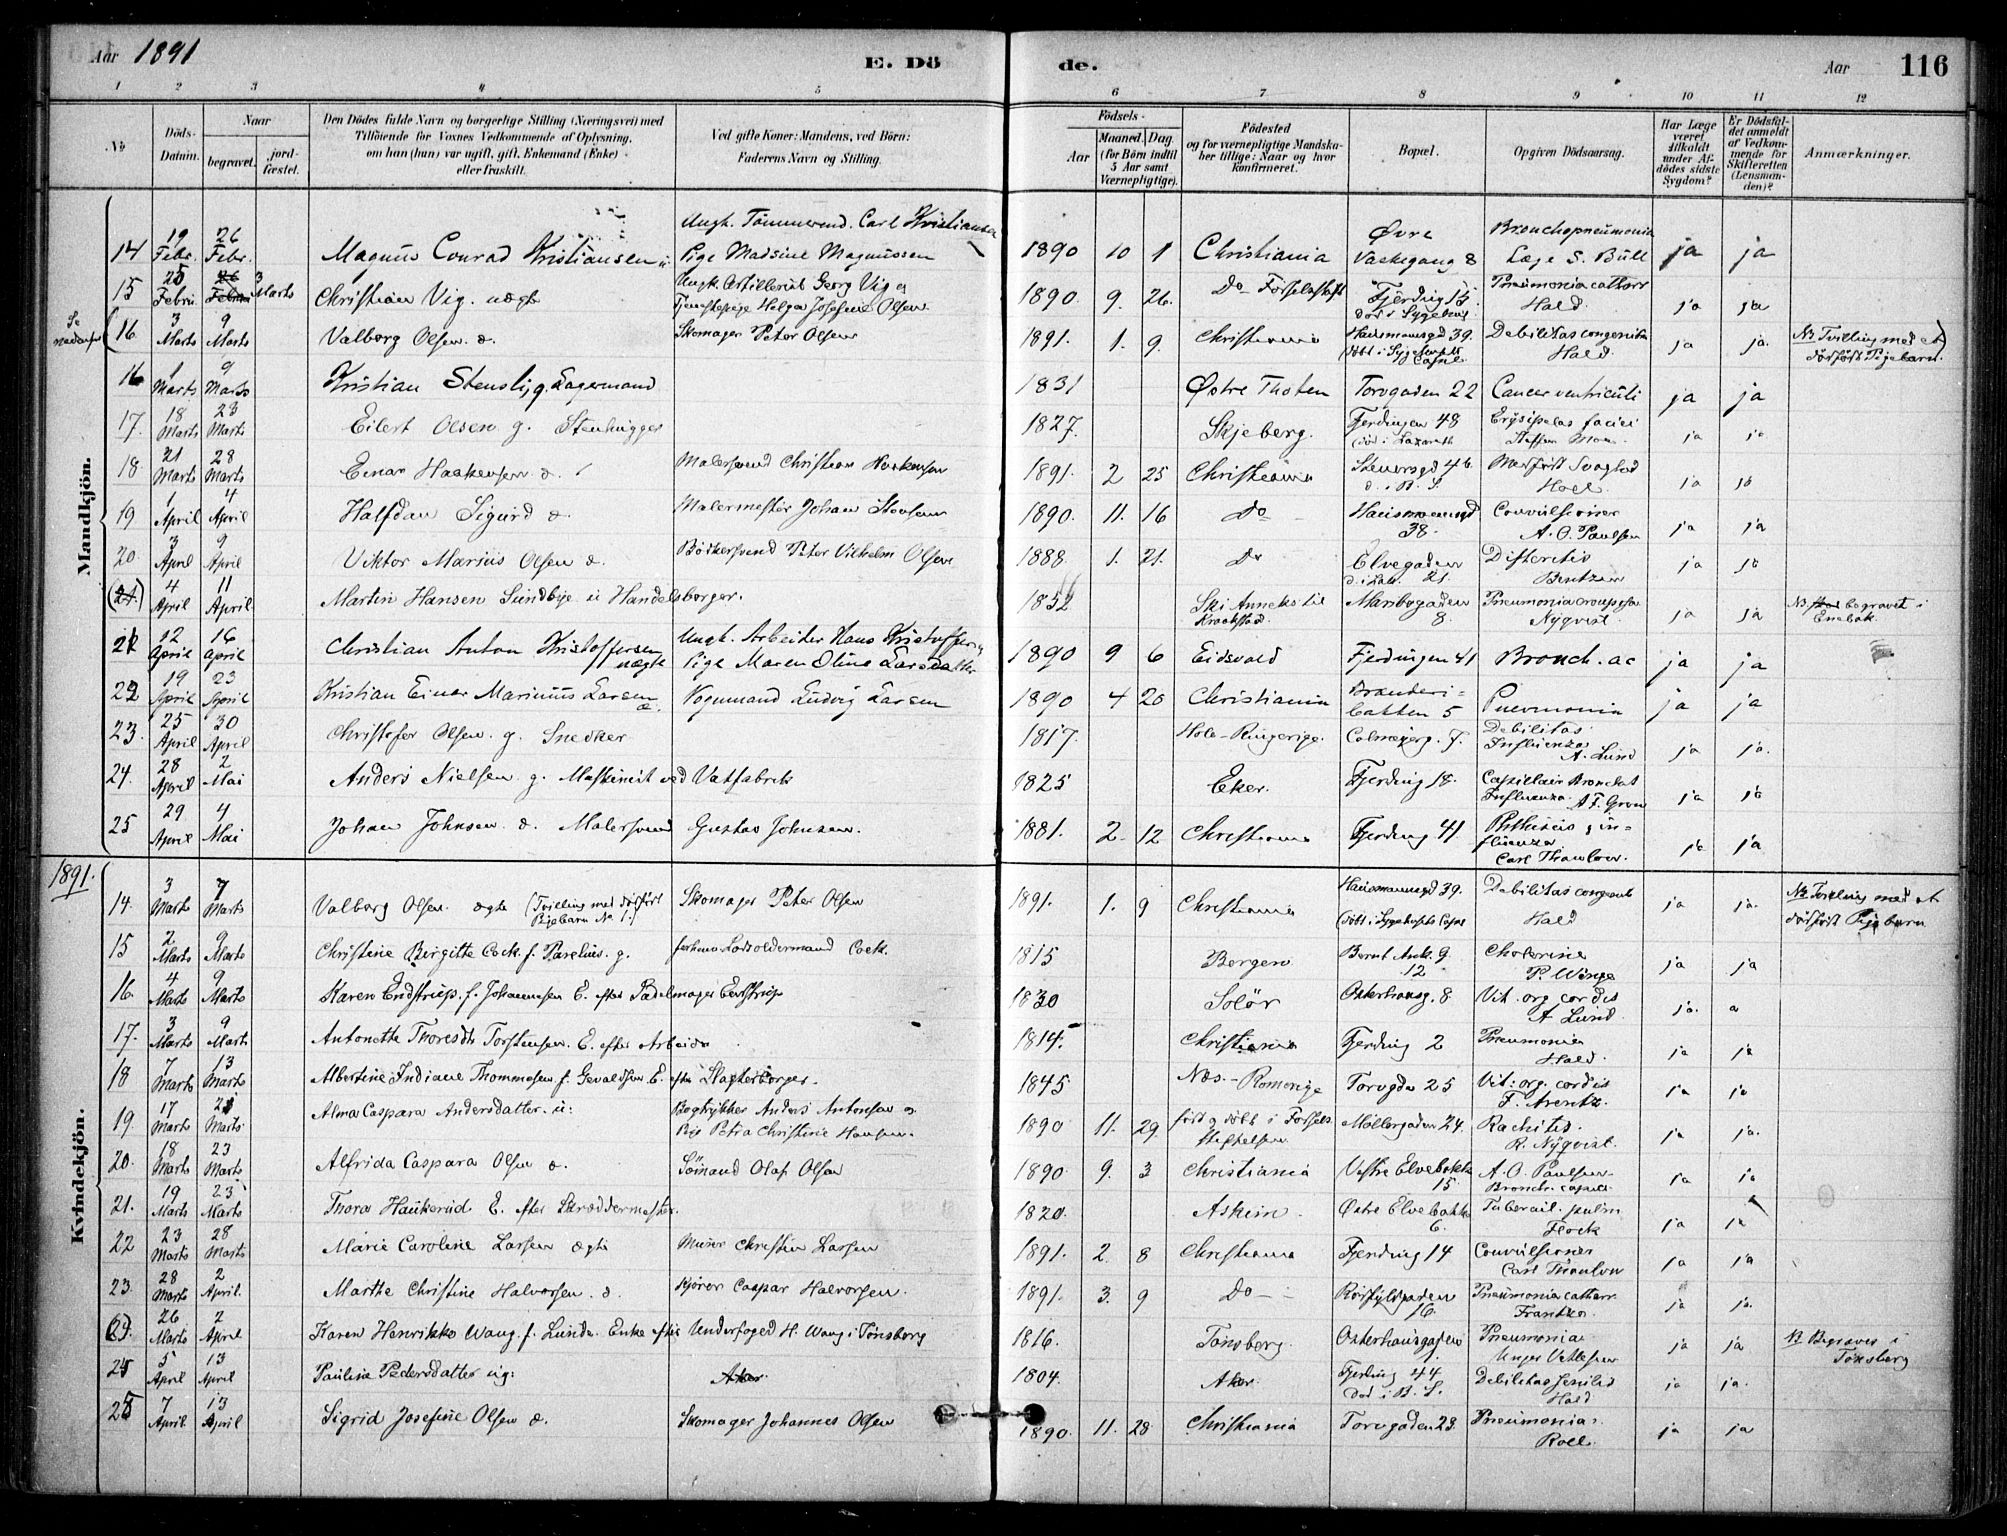 Aar 1891
E. Dö
de.
Aar
116
1 2 3 4 5 6 7 8 9 10 11 12
No
Döds-Datum.
Naar
begravet.
jord-fæstet.
Den Dödes fulde Navn og borgerlige Stilling (Næringsvei) med
Tilföiende for Voxnes Vedkommende af Oplysning,
om han (hun) var ugift, gift, Enkemand (Enke)
eller fraskilt.
Ved gifte Koner: Mandens, ved Börn:
Faderens Navn og Stilling.
Födsels-
Aar
Maaned. Dag.
(for Börn indtil
5 Aar samt
Værnepligtige).
Födested
og for værnepligtige Mandska-
ber tillige: Naar og hvor
konfirmeret.
Bopæl.
Opgiven Dödsaarsag.
Har Læge
været
tilkaldt
under Af-
dödes sidste
Sygdom?
Er Dödsfal-
det anmeldt
af Vedkom-
mende for
Skifteretten
(Lensman-
den)?
Anmærkninger.
Mandkjön.
14 19 Febr. 26 Febr. Magnus Conrad Kristiansen u. Ungk. Tømmermd. Carl Kristiansen Pige Madsine Magnussen 1890 10 1 Christiania Øvre Vaskegang 8 Bronchopneumonia Læge S. Bull ja ja
15 25 Febru 3 Marts Christian Vig. uægte Ungk. Artillerist Georg Vig og Tjenestepige Helga Josefine Olsen 1890. 9. 26. Do Fødselsstift Fjerding 15 Død i Sygehus Pneumonia catharr Hald. ja ja
16 3 Marts 9 Marts Valborg Olsen. æ. Skomager Peter Olsen 1891. 1. 9. Christiania Hausmannsgd 39. Debilitas congenita Hald. ja ja. NB Tvilling med et dødfødt Pigebarn.
16 1 Marts 9 Marts Kristian Stenslig g. Lagermand 1831 Østre Thoten Torvgaden 22 Cancer ventriculi ja ja
17. 18 Marts 23 Marts Eilert Olsen g. Stenhugger 1827. Skjeberg. Fjerdingen 48 Erysipelas faciei ja ja
18. 21 Marts 28 Marts Einar Haakensen æ. Malersvend Christian Haakensen 1891. 2 25 Christiania Steensgd 46. d. i B. S. Medfødt Svaghed ja ja
19 1 April 4 April Halfdan Sigurd æ. Malermester Johan 1890. 11. 16 Do Hausmannsgd 38. Convulsioner A. O. Paulsen ja ja
20. 3 April 9 April Viktor Marius Olsen æ. Bødkersvend Peter Vilhelm Olsen 1888 1. 21. Do Elvegaden 21. Difteritis Bentzen ja ja
(21.) 4 April 11 April. Martin Hansen Sundbye u Handelsborger. 1832 Ski Annex til Kraakstad. Maribogaden 8. Pneumonia crouposa Nyqvist. ja ja NB begravet i Enebak.
21 12 April 16 April Christian Anton Kristoffersen uægte Ungk. Arbeider Hans Kristoffersen Pige Maren Oline Larsdatter 1890 9 6 Eidsvold Fjerdingen 41 Bronch. ac ja ja
22 19 April 23 April Kristian Einar Marinius Larsen æ. Vognmand Ludvig Larsen 1890 4 20 Christiania Branderi-bakken 5 Pneumonia ja ja
23. 25 April 30 April Christofer Olsen. g. Snedker 1817. Hole Ringerige. Calmeyerg. 7. Debilitas. Influenza A. Lund ja ja.
24. 28 April 2 Mai Anders Nielsen g. Maskinist ved Vatfabrik 1825 Eker. Fjerding 18. Capillair Bronchit Influenza ja ja
25 29 April 4 Mai Johan Johnsen æ. Malersvend Gustav Johnsen. 1881. 2. 12 Christiania Fjerding 41 Phthisis & in-fluenza Carl Thaulow. ja ja
1891.
Kvindekjön.
14. 3 Marts 7 Marts Valborg Olsen ægte (Tvilling med dødfødt Pigebarn No 1.) Skomager Peter Olsen 1891. 1. 9 Christiania Hausmannsgd 39. Debilitas congenita Hald ja ja. NB Tvilling med et dødfødt Pigebarn
15 2 Marts 9 Marts Christine Birgitte Cock f. Parelius. g. Lodsoldermand Cock. 1815 Bergen Bernt Ankg. 12 Cholerine P. Winge ja ja
16. 4 Marts 9 Marts Karen Endstrup. f. Johannesen E. efter Sadelmager Endstrup 1830 Solør Osterhausg. 8 Vit. org. cordis A Lund. ja. a
17. 3 Marts 9 Marts Antonette Thoresdt. Torstensen. E. efter Arbeider 1814. Christiania Fjerding 2 Pneumonia Hald. ja ja
18 7 Marts 13 Marts Albertine Indiane Thommesen f. Gevaldsen E. efter Slagterborger. 1845 Næs - Romerige Torvgden 25 Vit: org. cordis F. Arentz. ja ja
19. 17 Marts Marts Alma Caspara Andersdatter. u: Bogtrykker Anders Antonsen og Pige Petra Christine Hansen. 1890 11. 29. født og døbt i Fødsels Stiftelsen. Møllergaden 24. Rachitis. R. Nyqvist. ja ja.
20. 18 Marts 23 Marts Alfrida Caspara Olsen æ. Sømand Olaf Olsen 1890. 9. 3 Christiania Vestre Elvebakke 15. A. O. Paulsen Bronch. capill. ja ja
21. 19 Marts 23 Marts Thora Haukerud E. efter Skræddermester. 1820. Askim. Østre Elvebakke 6. Tubercul. pulm ja ja
22 23 Marts 28 Marts Marie Caroline Larsen ægte Murer Christian Larsen 1891. 2. 8 Christiania Fjerding 14 Convulsioner Carl Thaulow ja ja
23. 28 Marts 2 April. Marthe Christine Halvorsen. æ. Kjører Caspar Halvorsen. 1891. 3. 9 Do - 16. Pneumonia catharr. ja ja.
26 Marts 2 April Karen Henrikke Wang f. Lund. Enke efter Underfoged H. Wang i Tønsberg 1816. Tønsberg. Osterhausgaden Pneumonia ja ja NB Begraves i Tønsberg
5 April 13 April Pauline Pedersdatter ug: Aker. 1804. Aker Fjerding 44 Død i B. S. Debilitas senilis Hald ja ja.
7 April. 13 April Sigrid Josefine Olsen æ. Skomager Johannes Olsen 1890. 11. 28. Christiania Torvgaden 28. Pneumonia. Roll. ja ja